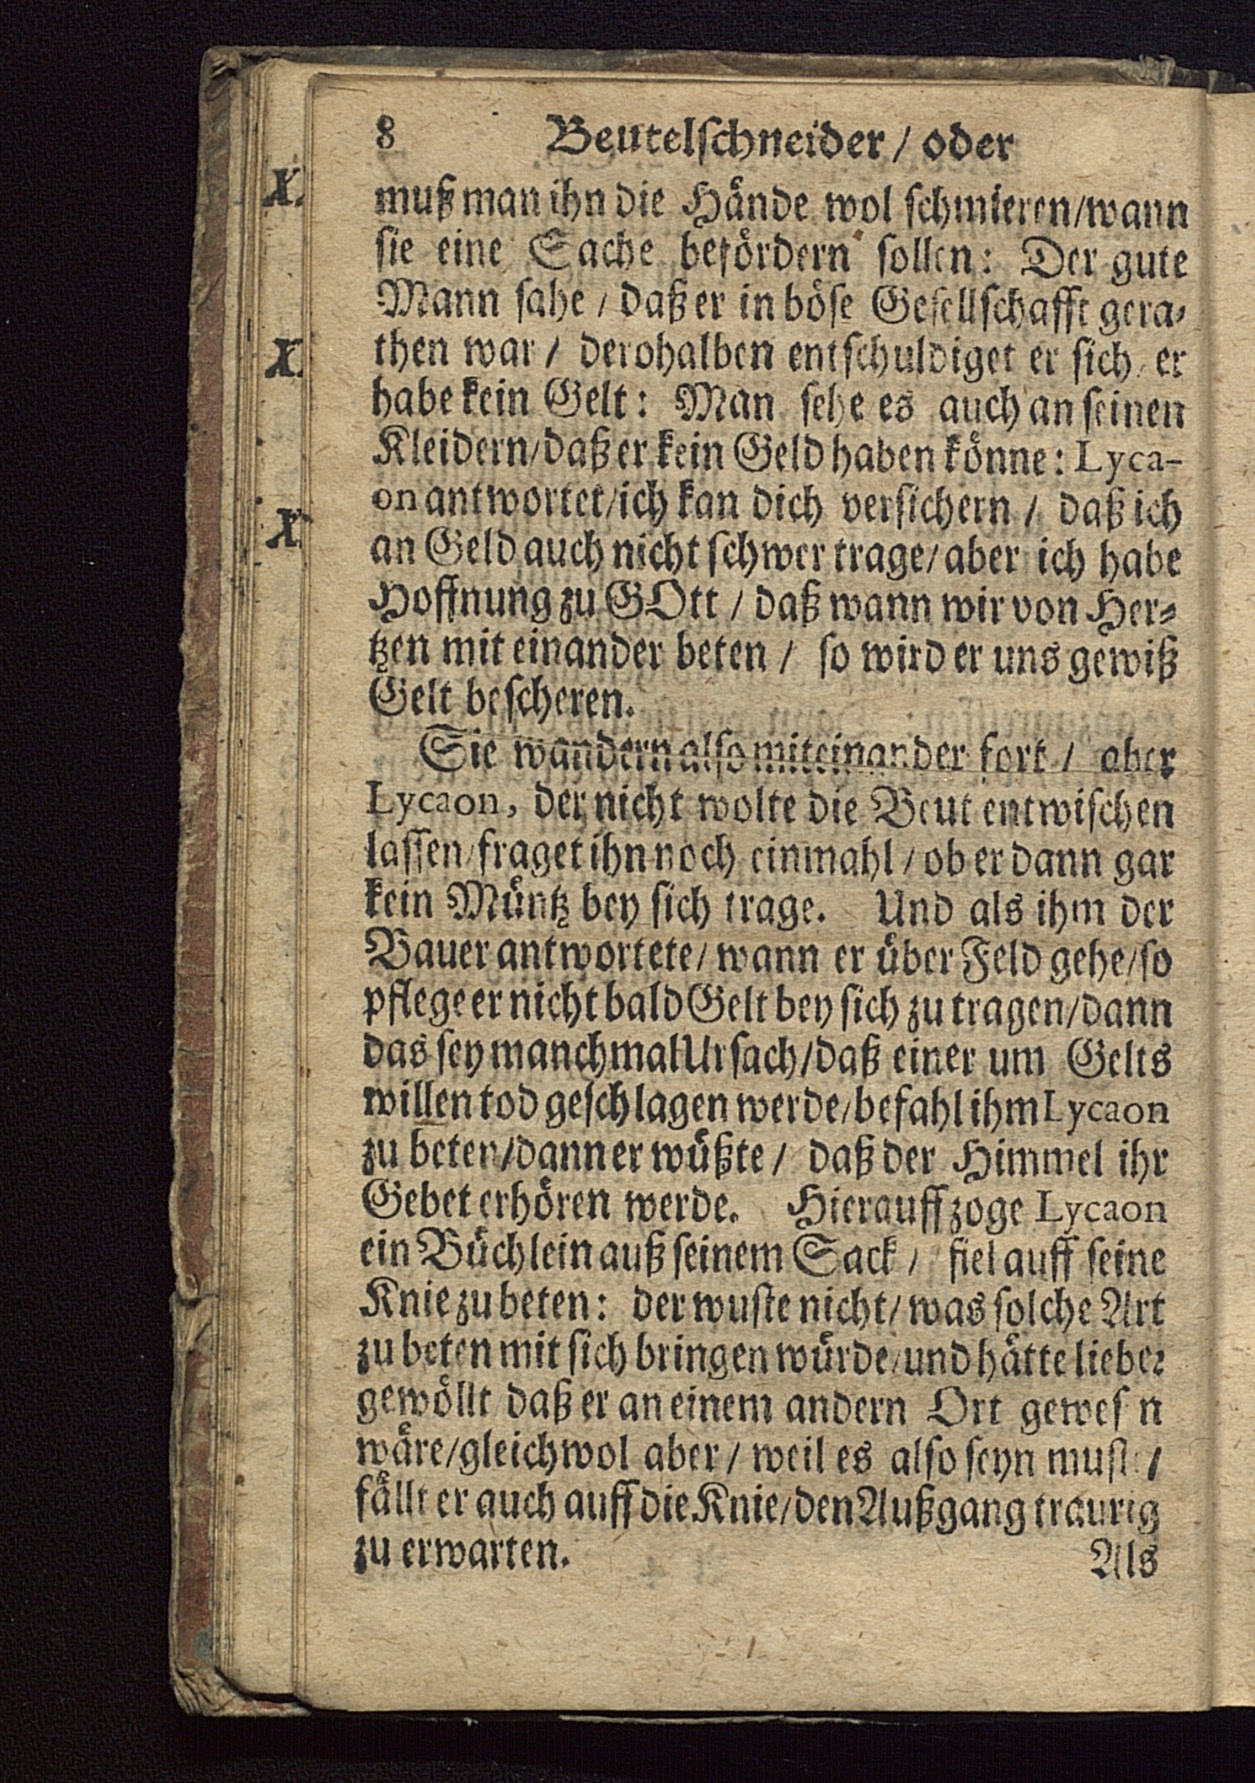 8 Beutelschneider / oder
muß man ihn die Hände wol schmieren/wann
sie eine Sache befördern sollen: Der gute
Mann sahe / daß er in böse Gesellschafft gera-
then war / derohalben entschuldiget er sich / er
habe kein Gelt: Man sehe es auch an seinen
Kleidern/daß er kein Geld haben könne: Lyca-
on antwortet/ich kan dich versichern / daß ich
an Geld auch nicht schwer trage/aber ich habe
Hoffnung zu GOtt / daß wann wir von Her-
tzen mit einander beten / so wird er uns gewiß
Gelt bescheren.
Sie wandern also miteinander fort / aber
Lycaon, der nicht wolte die Beut entwischen
lassen/fraget ihn noch einmahl / ob er dann gar
kein Müntz bey sich trage. Und als ihm der
Bauer antwortete/ wann er über Feld gehe/so
pflege er nicht bald Gelt bey sich zu tragen/dann
das sey manchmal Ursach/daß einer um Gelts
willen tod geschlagen werde/befahl ihm Lycaon
zu beten/dann er wüßte / daß der Himmel ihr
Gebet erhören werde. Hierauff zoge Lycaon
ein Büchlein auß seinem Sack / fiel auff seine
Knie zu beten: der wuste nicht/ was solche Art
zu beten mit sich bringen würde/und hätte lieber
gewöllt daß er an einem andern Ort gewes n
wäre/gleichwol aber / weil es also seyn must /
fällt er auch auff die Knie/den Außgang traurig
zu erwarten.
Als
X.
X.
X.